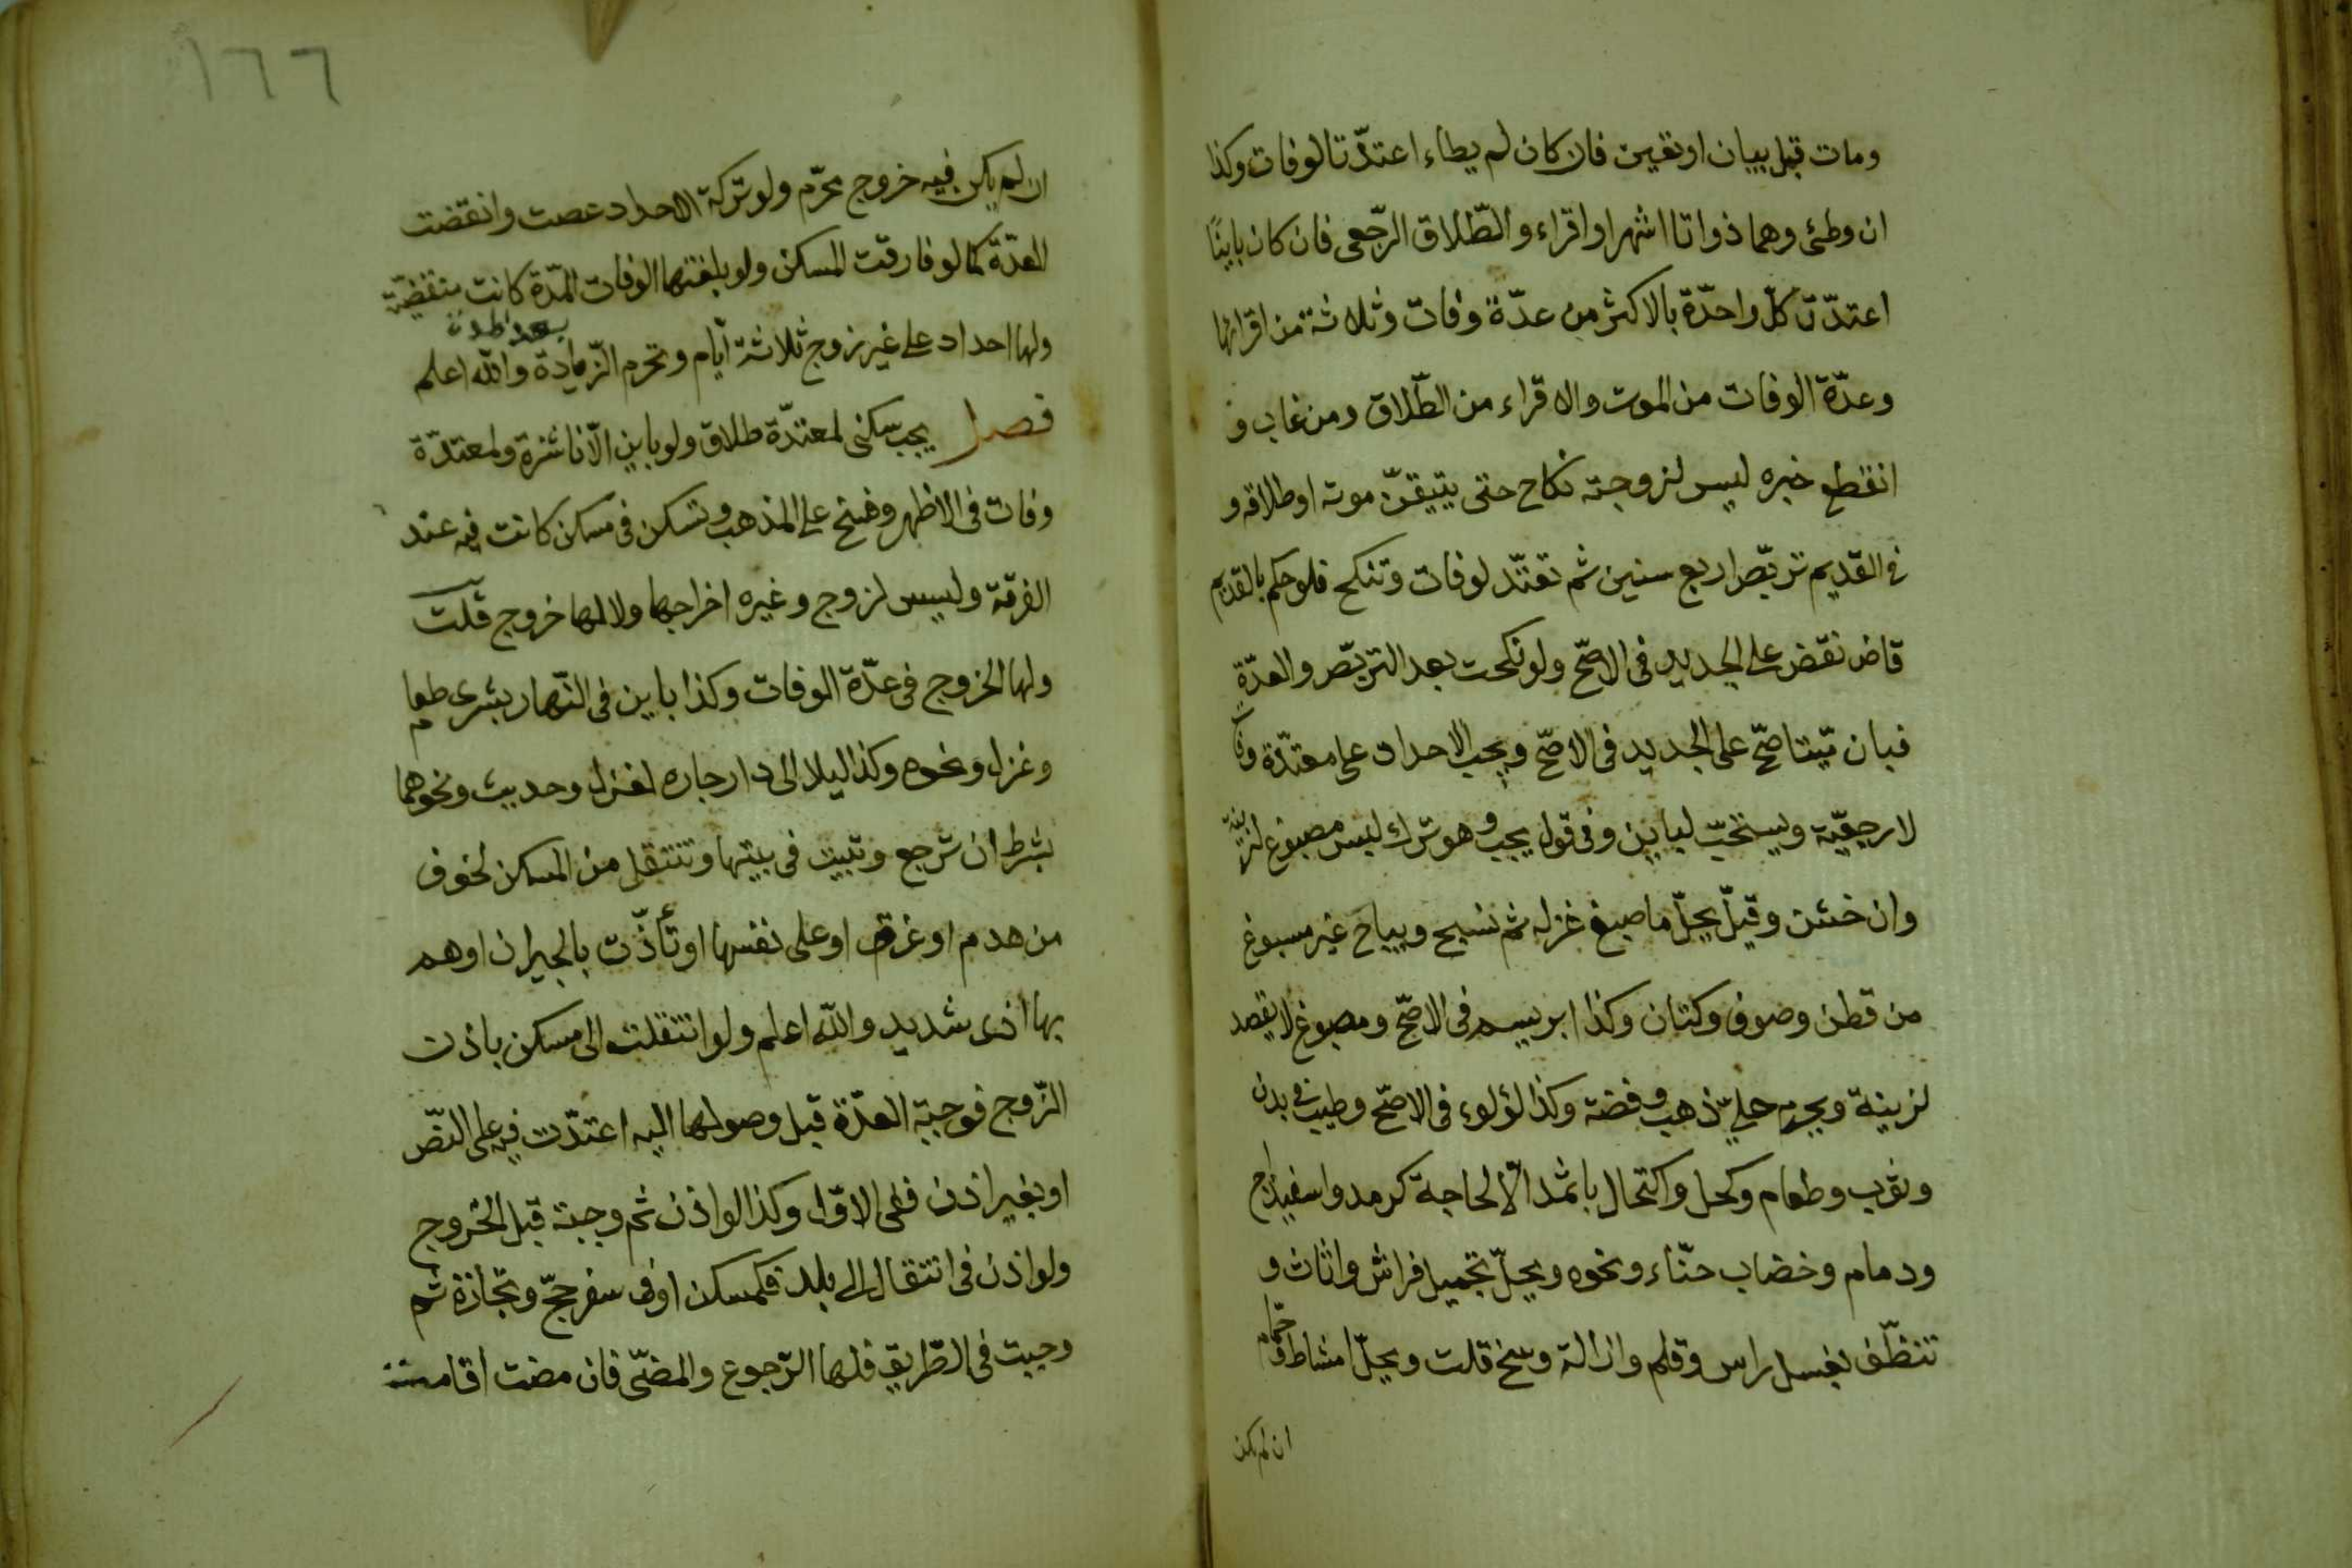 ومات قبل بيان اوتعين فان كان لم يطاء اعتدّتا لوفات وكذا
ان وطئى وهما ذواتا اشهر او اقراء والطّلاق الرّجعى فان كان باينًا
اعتدّت كلّ واحدّة بالاكثر من عدّة وفات وثلاثة من اقرائها
وعدّة الوفات من الموت والاقراء من الطّلاق ومن غاب و
انقطع خبره ليس لزوجته نكاح حتى يتيقّن موته اوطلاقه و
فى القديم تربّص اربع سنين ثم تعتدّ لوفات وتنكح فلو حكم بالقديم
قاض نقض على الجديد فى الاصحّ ولو نكحت بعد التربّص والعدّة
فبان ميّتا صحّ على الجديد فى الاصحّ ويجب الاحداد على معتدّة وفات
لا رجعيّة ويستحبّ لباين وفى قول يجب وهو ترك لبس مصبوغ لزينة
وان خشن وقيل يحلّ ما صبغ غزله ثم نسج ويباح غير مسبوغ
من قطن وصوف وكتان وكذا ابريسم فى الاصحّ ومصبوغ لا يقصد
لزينة ويحرم حليّ ذهب وفضة وكذا لؤلوء فى الاصحّ وطيب فى بدن
وثوب وطعام وكحل واكتحال باثمد الّا لحاجة كرمد واسفيداج
ودمام وخضاب حنّاء ونحوه ويحلّ تجميل فراش واثاث و
تنظّف بغسل راس وقلم وازالة وسخ قلت ويحلّ امتشاط وحمّام
ان لم يكن
١٦٦
ان لم يكن فيه خروج محرّم ولو تركة الاحداد عصت وانقضت
العدّة كما لو فارقت المسكن ولو بلغتها الوفات بعد المدّة كانت منقضيّة
ولها احداد على غير زوج ثلاثة ايّام وتحرم الزّيادة والله اعلم
فصل يجب سكنى لمعتدّة طلاق ولو باين الّا ناشزة ولمعتدّة
وفات فى الاظهر وفسخ على المذهب وتسكن فى مسكن كانت فيه عند
الفرقة وليس لزوج وغيره اخراجها ولا لها خروج قلت
ولها الخروج فى عدّة الوفات وكذا باين فى النّهار بشرى طعام
وغزل ونحوه وكذا ليلا الى دار جاره لغزل وحديث ونحوهما
بشرط ان ترجع وتبيت فى بيتها وتنتقل من المسكن لخوف
من هدم او غرق او على نفسها او تأذّت بالجيران اوهم
بها اذى شديد والله اعلم ولو انتقلت الى مسكن باذن
الزّوج فوجبة العدّة قبل وصولها اليه اعتدّت فيه على النصّ
او بغير اذن ففى الاوّل وكذا لو اذن ثم وجبة قبل الخروج
ولو اذن فى انتقال الى بلد فكمسكن او فى سفر حجّ وتجازة ثم
وجبت فى الطّريق فلها الرّجوع والمضىّ فان مضت اقامت